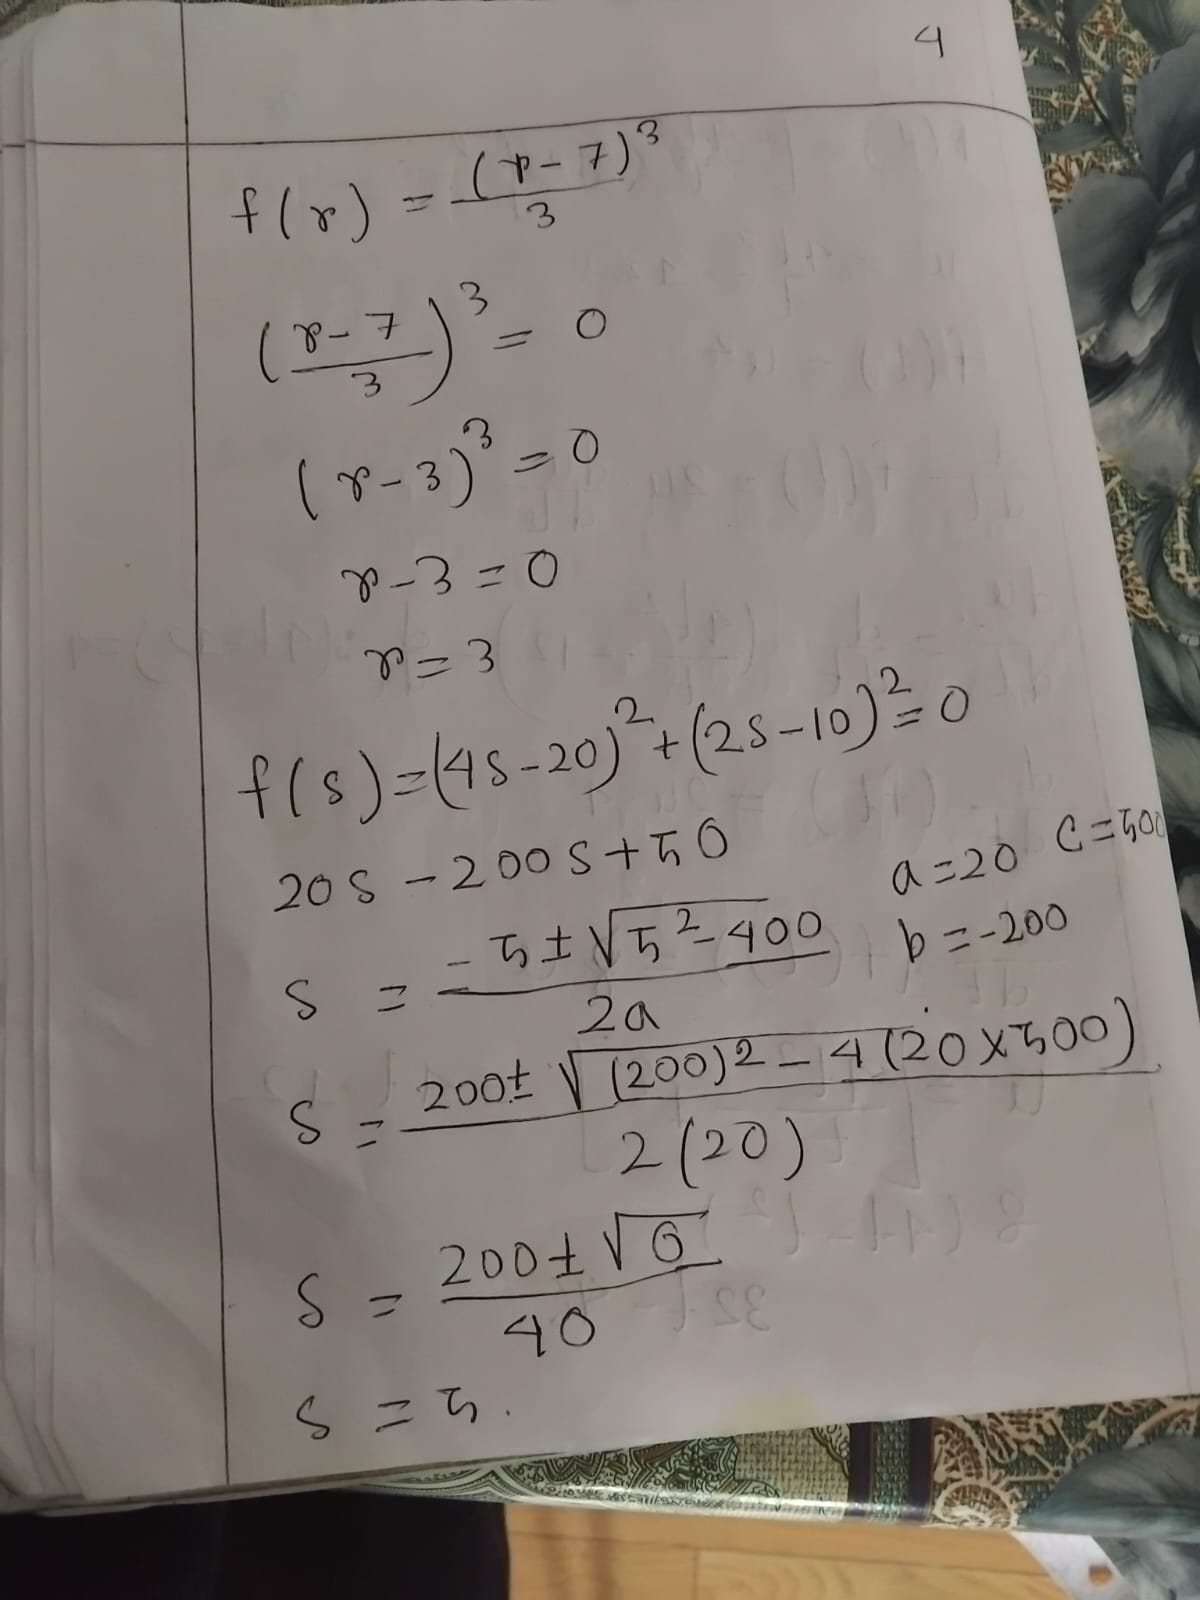 4
f(r) = (r-7)³/3
((r-7)/3)³ = 0
(r-3)³ = 0
r-3 = 0
r = 3
f(s) = (4s-20)² + (2s-10)² = 0
20s - 200s + 50
a = 20 c = 500
b = -200
s = (-5 ± √(5² - 400))/2a
s = (200 ± √((200)² - 4(20×500)))/2(20)
s = (200 ± √0)/40
s = 5.